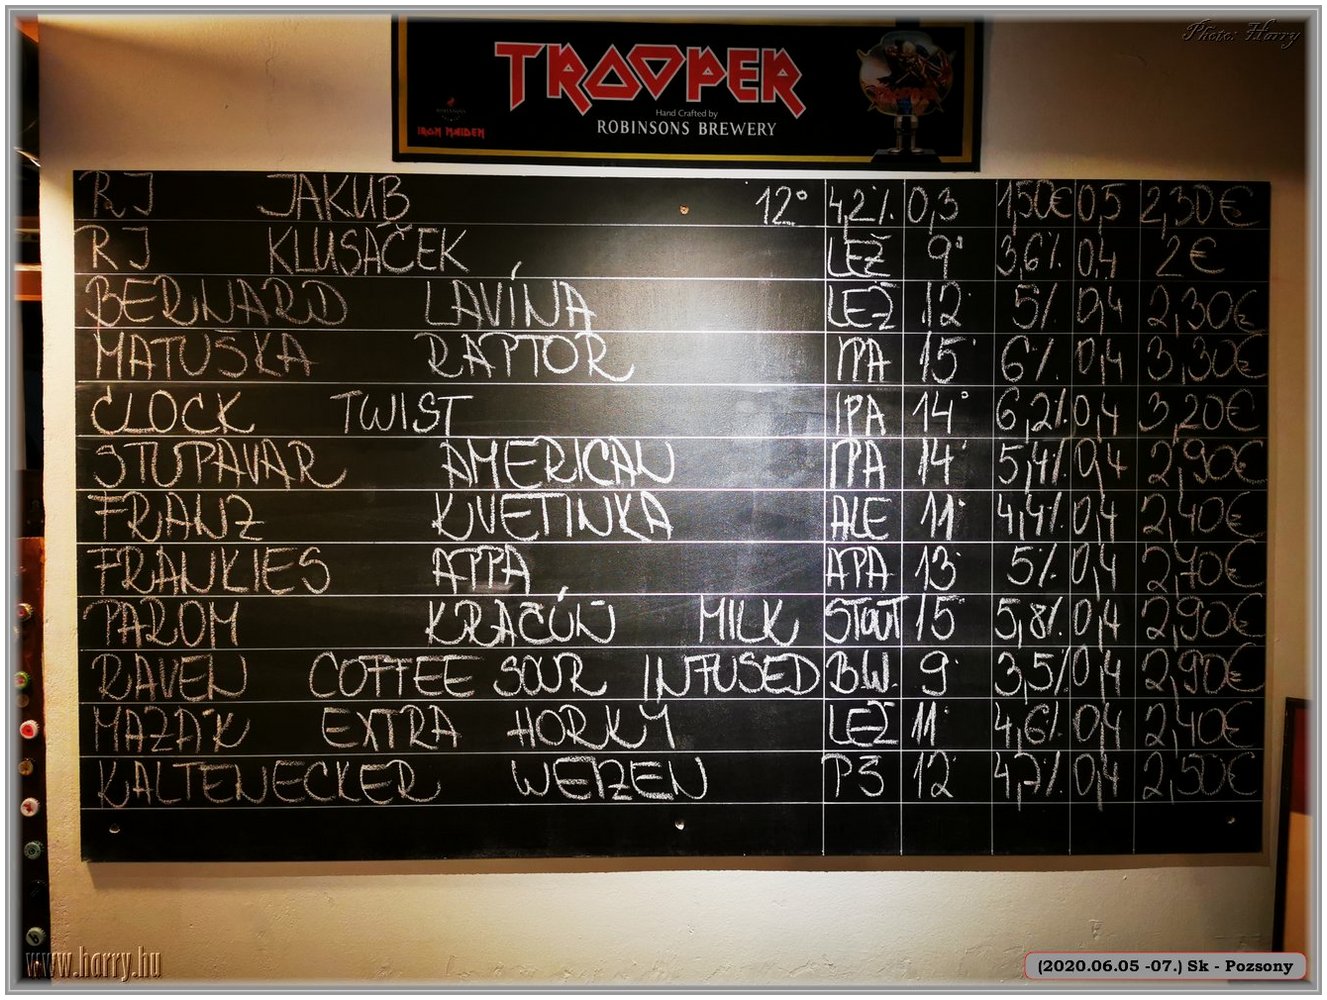 Photo: Harry
TROOPER
Hand Crafted by
ROBINSONS BREWERY
IRON MAIDEN
RJ JAKUB 12° 4,2% 0,3 1,50€ 0,5 2,30€
RJ KLUSÁČEK LEŽ 9° 3,6% 0,4 2€
BERNARD LAVÍNA LEŽ 12° 5% 0,4 2,30€
MATUŠKA RAPTOR IPA 15° 6% 0,4 3,30€
CLOCK TWIST IPA 14° 6,2% 0,4 3,20€
STUPAVAR AMERICAN IPA 14° 5,4% 0,4 2,90€
FRANZ KVETINKA ALE 11° 4,4% 0,4 2,40€
FRANKIES APPA APA 13° 5% 0,4 2,70€
PAROM KRAČÚŇ MILK STOUT 15° 5,8% 0,4 2,90€
RAVEN COFFEE SOUR INFUSED B.W. 9° 3,5% 0,4 2,90€
MAZÁK EXTRA HORKÝ LEŽ 11° 4,6% 0,4 2,40€
KALTENECKER WEIZEN PŠ 12° 4,7% 0,4 2,50€
www.harry.hu
(2020.06.05 -07.) Sk - Pozsony